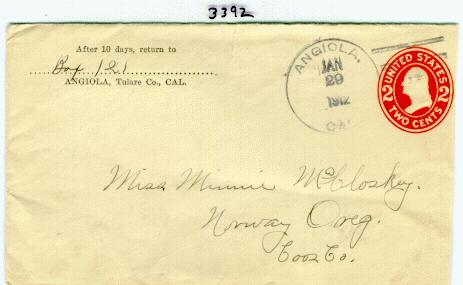 3392
After 10 days, return to
Box 121
ANGIOLA, Tulare Co., CAL.
ANGIOLA.
JAN
29
1912
CAL
UNITED STATES
2 2
TWO CENTS
Miss Minnie McCloskey.
Norway Oreg.
Coos Co.